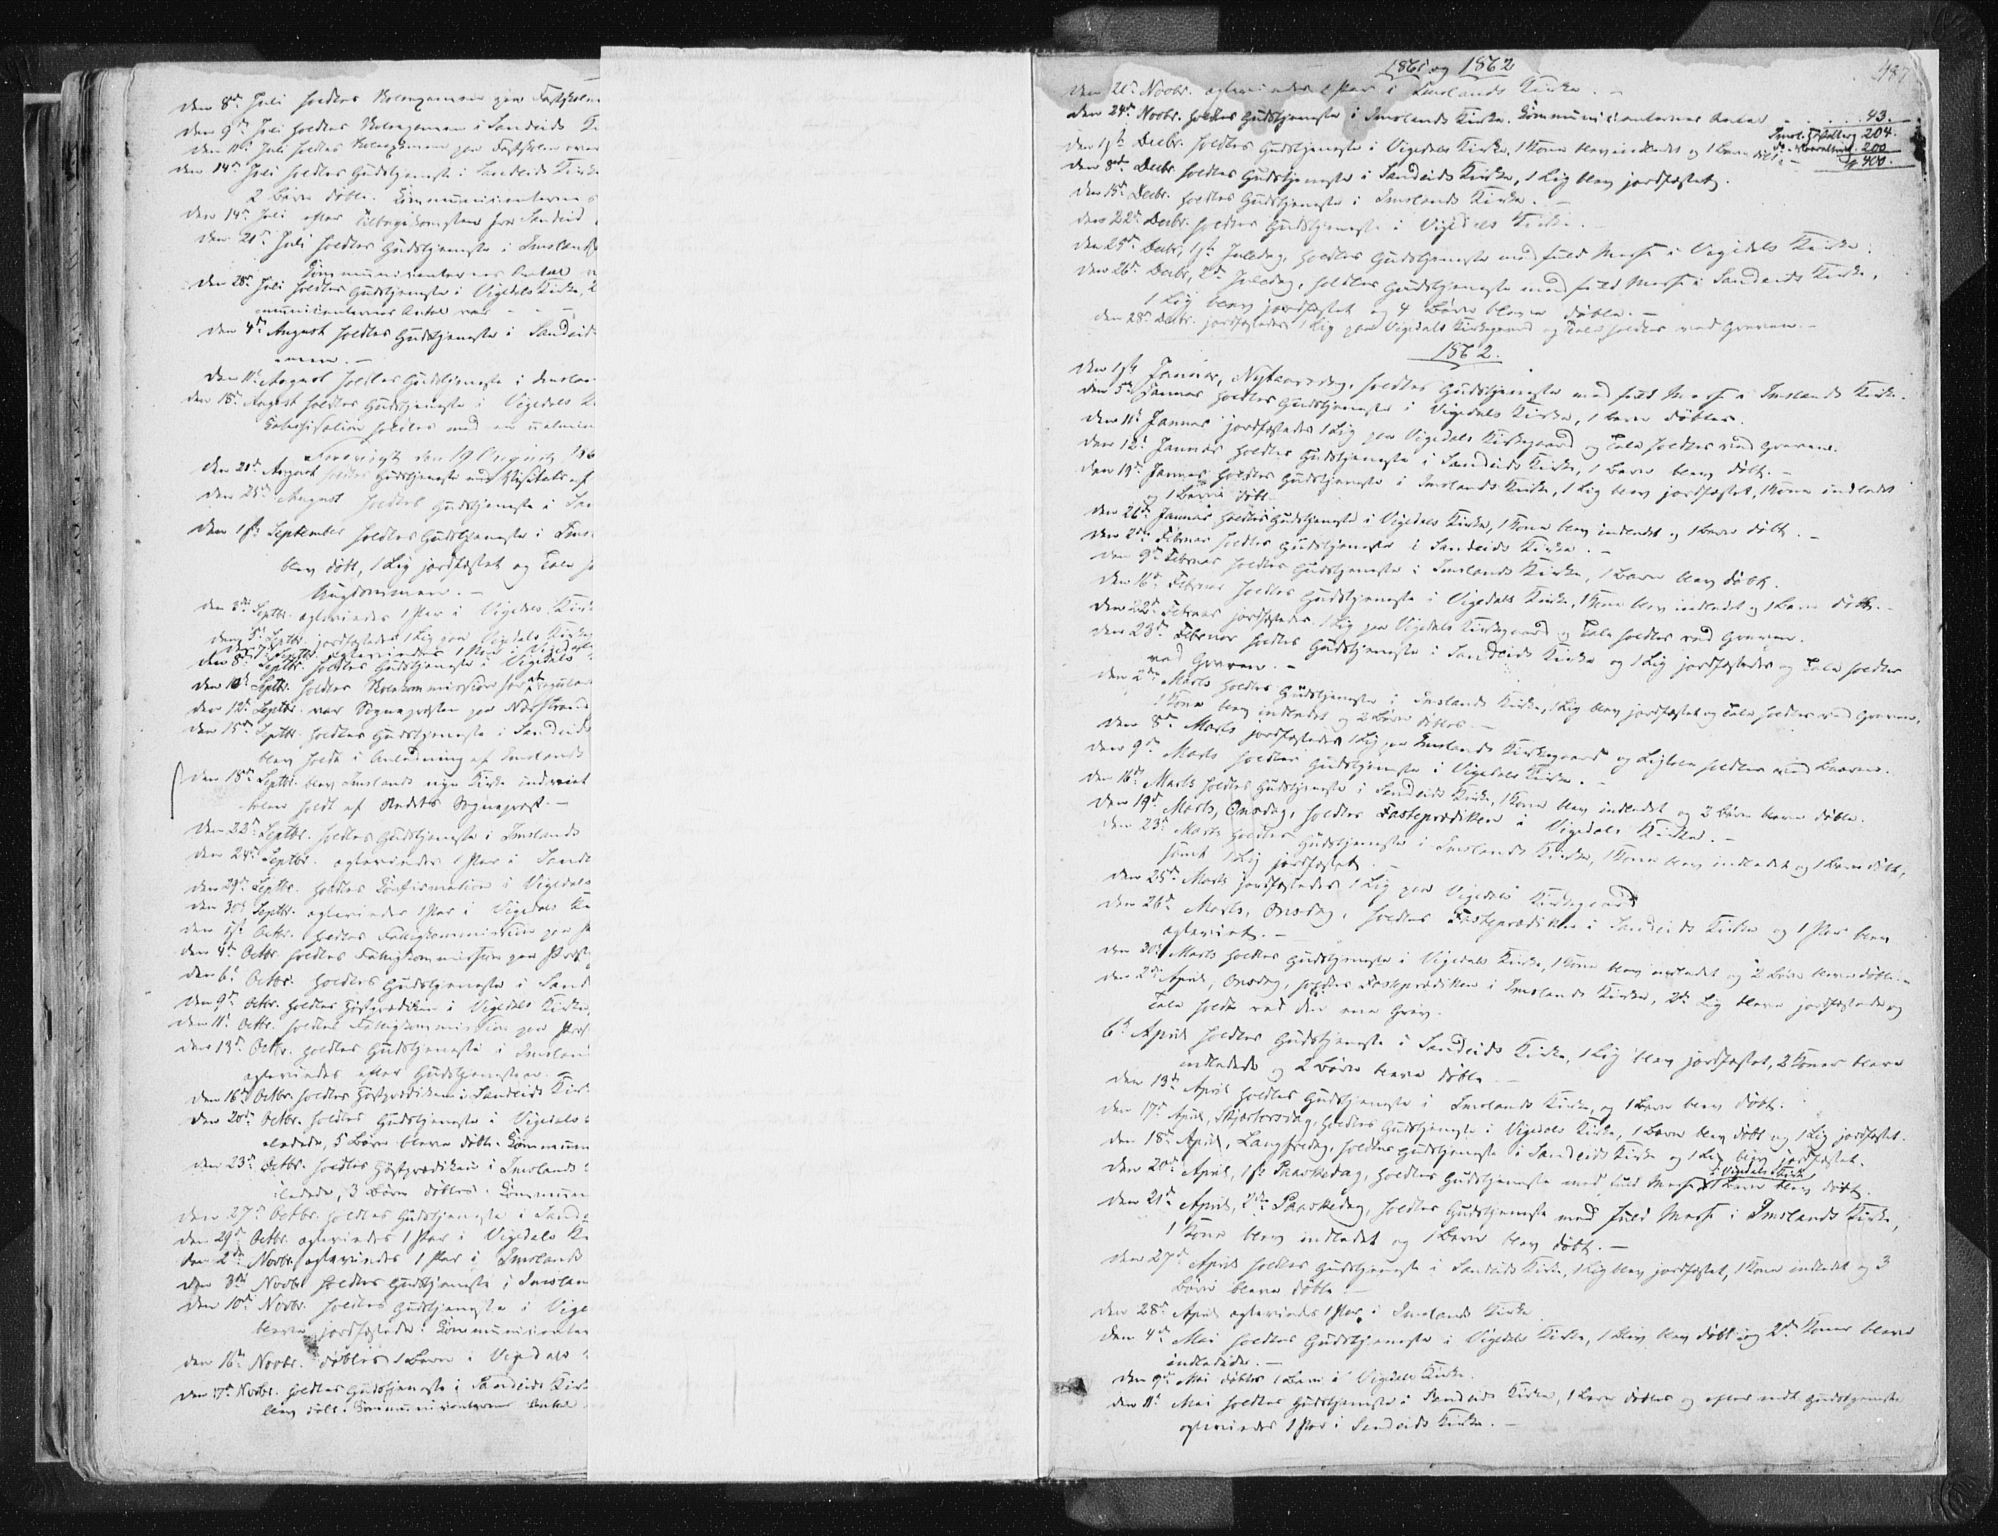 den 8de Juli holdtes
den 9de Juli holdtes i Sandeids
den 11te Juli holdtes
den 14de Juli holdtes Gudstjeneste i Sandeids Kirke
2 Børn døbte. Communicanternes
den 14de Juli efter Tilbagekomsten fra Sandeid
den 21de Juli holdtes Gudstjeneste i Imslands
Communicanternes Antal
den 28de Juli holdtes Gudstjeneste i Vigedals Kirke,
municanternes Antal var
den 4de August holdtes Gudstjeneste i Sandeids
den 11te August holdtes Gudstjeneste i Imslan
den 18de August holdtes Gudstjeneste i Vigedals K
Catechisation holdtes med en
den 21de August holdtes Gudstjeneste med Visitats af
den 25de August holdtes Gudstjeneste i San
den 1ste September holdtes Gudstjeneste i Ims
blev døbt, 1 Lig jordfæstet og Tale
Ungdommen. –
den 3die Septbr. ægteviedes 1 Par i Vigedals Kirke
den 5te Septbr. jordfæstedes 1 Lig paa Vigedals Kirkeg
den 7de Septbr. ægteviedes 1 Par i Vigedals
den 8de Septbr. holdtes Gudstjeneste i Vigedals
den 10de Septbr. holdtes Skolekommission for at regulere
den 12te Septbr. var Sognepræsten paa Nærstrand
den 15de Septbr. holdtes Gudstjeneste i Sandeids
blev holdt i Anledning af Imslands
den 18de Septbr. blev Imslands nye Kirke indviet
holdt af Stedets Sognepræst. –
den 22de Septbr. holdtes Gudstjeneste i Imslands
den 24de Septbr. ægteviedes 1 Par i Sande
den 29de Septbr. holdtes Confirmation i Vigedals
den 30te Septbr. ægteviedes 1 Par i Vigedals Ki
den 1ste Octbr. holdtes Fattigkommission paa
den 4de Octbr. holdtes Fattigkommission paa Præst
den 6te Octbr. holdtes Gudstjeneste i Sand
den 9de Octbr. holdtes Høstprædiken i Vigedals Kirke,
den 11te Octbr. holdtes Fattigkommission paa Præs
den 13de Octbr. holdtes Gudstjeneste i Imslan
ægteviedes efter Gudstjenesten. –
den 16de Octbr. holdtes Høstprædiken i Sandeids Kir
den 20de Octbr. holdtes Gudstjeneste i Vigedals
ledede, 5 Børn bleve døbte. Commun
den 23de Octbr. holdtes Høstprædiken i Imslands
ledede, 3 Børn døbtes. Commun
den 27de Octbr. holdtes Gudstjeneste i Sande
den 29de Octbr. ægteviedes 1 Par i Vigedals Ki
den 2den Novbr. ægteviedes 1 Par i Imslands
den 3die Novbr. holdtes Gudstjeneste i Imslan
den 10de Novbr. holdtes Gudstjeneste i Vige
bleve jordfæstede. Communicanter
den 16de Novbr. døbtes 1 Barn i Vigedals
den 17de Novbr. holdtes Gudstjeneste i Sandeids Kir
blev døbt. Communicanternes Antal
1861 og 1862
487
den 21de Novbr. ægteviedes 1 Par i Imslands Kirke. –
den 24de Novbr. holdtes Gudstjeneste i Imslands Kirke. Communicanternes Antal 43.
204.
200
400.
den 1ste Decbr. holdtes Gudstjeneste i Vigedals Kirke, 1 Kone blev indledet og 1 Barn døbt. –
den 8de Decbr. holdtes Gudstjeneste i Sandeids Kirke, 1 Lig blev jordfæstet.
den 15de Decbr. holdtes Gudstjeneste i Imslands Kirke. –
den 22de Decbr. holdtes Gudstjeneste i Vigedals Kirke. –
den 25de Decbr, 1ste Juledag, holdtes Gudstjeneste med fuld Messe i Vigedals Kirke.
den 26de Decbr, 2den Juledag, holdtes Gudstjeneste med fuld Messe i Sandeids Kirke,
1 Lig blev jordfæstet og 4 Børn bleve døbte. –
den 28de Decbr. jordfæstedes 1 Lig paa Vigedals Kirkegaard og Tale holdtes ved Graven. –
1862.
den 1ste Januar, Nytaarsdag, holdtes Gudstjeneste med fuld Messe i Imslands Kirke.
den 5te Januar holdtes Gudstjeneste i Vigedals Kirke, 1 Barn døbtes.
den 11te Januar jordfæstedes 1 Lig paa Vigedals Kirkegaard og Tale holdtes ved Graven.
den 12te Januar holdtes Gudstjeneste i Sandeids Kirke, 1 Barn blev døbt. –
den 19de Januar holdtes Gudstjeneste i Imslands Kirke, 1 Lig blev jordfæstet, 1 Kone indledet
og 1 Barn døbt.
den 26de Januar holdtes Gudstjeneste i Vigedals Kirke, 1 Kone blev indledet og 1 Barn døbt. –
den 2den Februar holdtes Gudstjeneste i Sandeids Kirke. –
den 9de Februar holdtes Gudstjeneste i Imslands Kirke, 1 Barn blev døbt.
den 16de Februar holdtes Gudstjeneste i Vigedals Kirke, 1 Kone blev indledet og 1 Barn døbt. –
den 22de Februar jordfæstedes 1 Lig paa Vigedals Kirkegaard og Tale holdtes ved Graven.
den 23de Februar holdtes Gudstjeneste i Sandeids Kirke og 1 Lig jordfæstedes og Tale holdtes
ved Graven. –
den 2den Marts holdtes Gudstjeneste i Imslands Kirke, 1 Lig blev jordfæstet og Tale holdtes ved Graven,
1 Kone blev indledet og 2 Børn døbtes. –
den 8de Marts jordfæstedes 1 Lig paa Imslands Kirkegaard og Ligtale holdtes ved Graven.
den 9de Marts holdtes Gudstjeneste i Vigedals Kirke. –
den 16de Marts holdtes Gudstjeneste i Sandeids Kirke, 1 Kone blev indledet og 2 Børn bleve døbte.
den 19de Marts, Onsdag, holdtes Fasteprædiken i Vigedals Kirke. –
den 23de Marts holdtes Gudstjeneste i Imslands Kirke, 1 Kone blev indledet og 1 Barn døbt,
samt 1 Lig jordfæstet. –
den 25de Marts jordfæstedes 1 Lig paa Vigedals Kirkegaard
den 26de Marts, Onsdag, holdtes Fasteprædiken i Sandeids Kirke og 1 Par blev
ægteviet. –
den 30te Marts holdtes Gudstjeneste i Vigedals Kirke, 1 Kone blev indledet og 2 Børn bleve døbte. –
den 2den April, Onsdag, holdtes Fasteprædiken i Imslands Kirke, 2de Lig bleve jordfæstede og
Tale holdt ved den ene Grav.
6te April holdtes Gudstjeneste i Sandeids Kirke, 1 Lig blev jordfæstet, 2 Koner bleve
indledede og 2 Børn bleve døbte. –
den 13de April holdtes Gudstjeneste i Imslands Kirke, og 1 Barn blev døbt.
den 17de April, Skjærtorsdag, holdtes Gudstjeneste i Vigedals Kirke, 1 Barn blev døbt og 1 Lig jordfæstet.
den 18de April, Langfredag, holdtes Gudstjeneste i Sandeids Kirke og 1 Lig blev jordfæstet.
den 20de April, 1ste Paaskedag, holdtes Gudstjeneste med fuld Messe i Vigedals Kirke 1 Barn blev døbt.
den 21de April, 2den Paaskedag, holdtes Gudstjeneste med fuld Messe i Imslands Kirke,
1 Kone blev indledet og 1 Barn blev døbt. –
den 27de April holdtes Gudstjeneste i Sandeids Kirke, 1 Lig blev jordfæstet, 1 Kone indledet og 3
Børn bleve døbte. –
den 28de April ægteviedes 1 Par i Imslands Kirke
den 4de Mai holdtes Gudstjeneste i Vigedals Kirke, 1 Barn blev døbt og 2de Koner bleve
indledede. –
den 9de Mai døbtes 1 Barn i Vigedals Kirke.
den 11te Mai holdtes Gudstjeneste i Sandeids Kirke, 1 Barn døbtes og efter endt Gudstjeneste
ægteviedes 1 Par i Sandeids Kirke. –